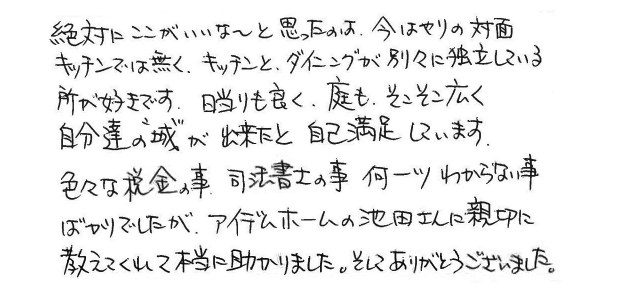 絶対にここがいいな〜と思ったのは、今はやりの対面
キッチンでは無く、キッチンと、ダイニングが別々に独立している
所が好きです。日当りも良く、庭も、そこそこ広く
自分達の"城"が出来たと自己満足しています。
色々な税金の事、司法書士の事 何一ツわからない事
ばかりでしたが、アイデムホームの池田さんに親切に
教えてくれて本当に助かりました。そしてありがとうございました。